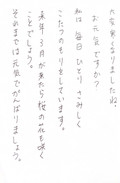 大変寒くなりましたね。
お元気ですか?
私は毎日ひとりさみしく
こたつのもりをしています。
来年3月が来たら桜の花も咲く
ことでしょう。
それまでは元気でがんばりましょう。